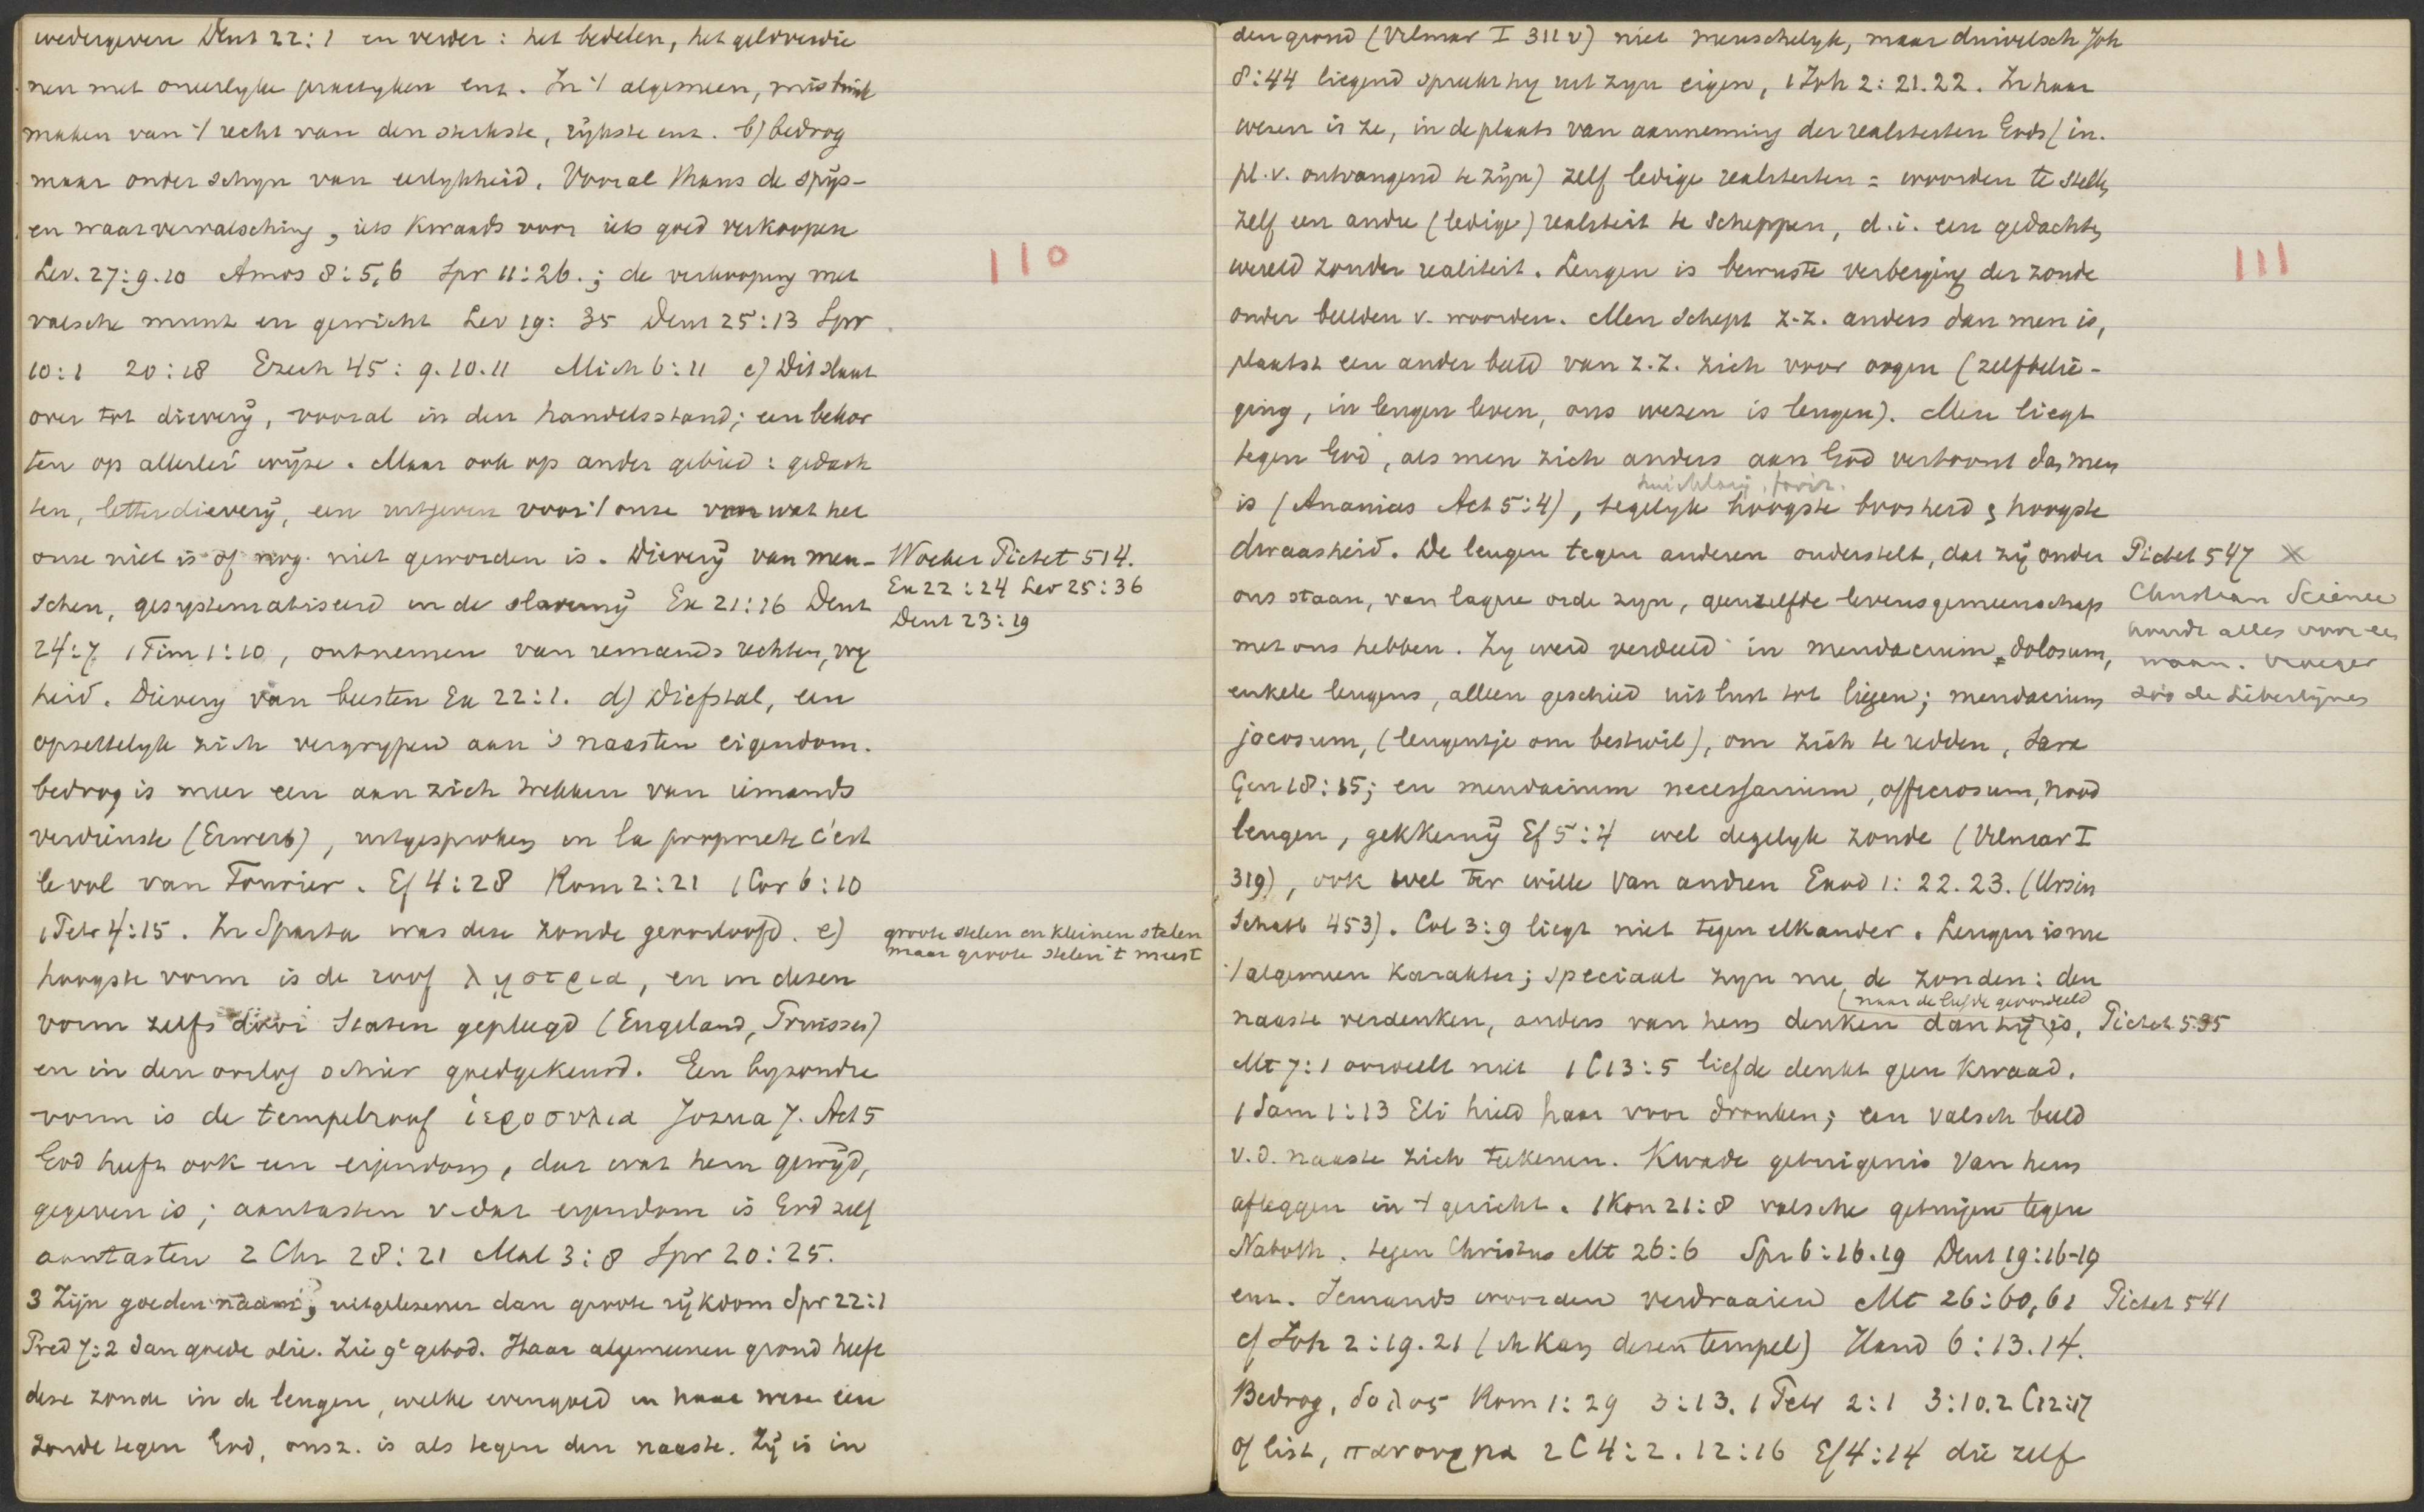 wedergeven Deut 22:1 en verder: het bedelen, het geldverdie
nen met oneerlyke practyken enz. In 't algemeen, misbruik
maken van 't recht van den sterkste, rijkste enz. b) bedrog
maar onder schyn van eerlykheid. Vooral thans de spijs-
en waarvervalsching, iets kwaads voor iets goed verkoopen
Lev. 27:9.10 Amos 8:5,6 Spr 11:26.; de verkooping met
valsche munt en gewicht Lev 19:35 Deut 25:13 Spr
10:1 20:18 Ezech 45:9.10.11 Mich 6:11 c) Dit slaat
over tot dieverij, vooral in den handelsstand; een bekor
ten op allerlei wijze. Maar ook op ander gebied: gedach
ten, letterdieverij, een uitgeven voor 't onze van wat het
onze niet is of nog niet geworden is. Dieverij van men-
schen, gesystematiseerd in de slavernij Ex 21:16 Deut
24:7, 1 Tim 1:10, ontnemen van iemands rechten, vry
heid. Dievery van beesten Ex 22:1. d) Diefstal, een
opzettelyk zich vergrypen aan 's naasten eigendom.
bedrog is meer een aan zich trekken van iemands
verdienste (Erwerb), uitgesproken in la propriete c'est
le vol van Fourier. Ef 4:28 Rom 2:21 1 Cor 6:10
1 Petr 4:15. In Sparta was deze zonde geoorloofd. e)
hoogste vorm is de roof λῃστεια, en in dezen
vorm zelfs door Staten gepleegd (Engeland, Pruisses)
en in den oorlog schier goedgekeurd. Een byzondre
vorm is de tempelroof ἱεροσυλια Jozua 7. Act 5
God heeft ook een eigendom, dat wat hem gewijd,
gegeven is; aantasten v. dat eigendom is God zelf
aantasten 2 Chr 28:21 Mal 3:8 Spr 20:25.
3 Zijn goeden naam, uitgelezener dan groote rijkdom Spr 22:1
Pred 7:2 dan goede olie. Zie 9e gebod. Haar algemeenen grond heeft
deze zonde in de leugen, welke evengoed in haar wezen een
zonde tegen God, onsz. is als tegen den naaste. Zij is in
110
Woeker Pictet 514.
Ex 22:24 Lev 25:36
Deut 23:19
groote stelen en kleinen stelen
maar groote stelen 't meest
den grond (Vilmar I 311 v) niet menschelyk, maar duivelsch Joh
8:44 liegend spreekt hy uit zyn eigen, 1 Joh 2:21.22. In haar
wezen is ze, in de plaats van aanneming der realiteiten Gods (in.
pl. v. ontvangend te zijn) zelf ledige realiteiten = woorden te stellen,
zelf een andre (ledige) realiteit te scheppen, d.i. een gedachten
wereld zonder realiteit. Leugen is bewuste verberging der zonde
onder beelden v. woorden. Men schept z.z. anders dan men is,
plaatst een ander beeld van z.z. zich voor oogen (zelfbelie-
ging, in leugen leven, ons wezen is leugen). Men liegt
tegen God, als men zich anders aan God vertoont dan men
is (Ananias Act 5:4), tegelyk hoogste boosheid & hoogste
dwaasheid. De leugen tegen anderen onderstelt, dat zij onder
ons staan, van lagere orde zyn, geenzelfde levensgemeenschap
met ons hebben. Zy werd verdeeld in mendacium dolosum,
enkele leugens, alleen geschied uit lust tot liegen; mendacium
jocosum, (leugentje om bestwil), om zich te redden, Sara
Gen 18:15; en mendacium necessarium, officiosum, nood
leugen, gekkernij Ef 5:4 wel degelyk zonde (Vilmar I
319), ook wel ter wille van andren Exod 1:22.23. (Ursin
Schatb 453). Col 3:9 liegt niet tegen elkander. Leugen is nu
't algemeen karakter; speciaal zyn nu de zonden: den
(naar de liefde geoordeeld
naaste verdenken, anders van hem denken dan hij is,
Mt 7:1 oordeelt niet 1 C 13:5 liefde denkt geen kwaad.
1 Sam 1:13 Eli hield haar voor dronken; een valsch beeld
v.d. naaste zich teekenen. Kwade getuigenis van hem
afleggen in 't gericht. 1 Kon 21:8 valsche getuigen tegen
Naboth. tegen Christus Mt 26:6 Spr 6:16.19 Deut 19:16-19
enz. Iemands woorden verdraaien Mt 26:60,61
cf Joh 2:19.21 (ik kan dezen tempel) Hand 6:13.14.
Bedrog, δολος Rom 1:29 3:13. 1 Petr 2:1 3:10. 2 C 12:17
of list, πανουργια 2 C 4:2. 12:16 Ef 4:14 die zelf
111
Pictet 547 X
Christian Science
houdt alles voor een
waan. Vroeger
zoo de Libertijnen
Pictet 535
Pictet 541